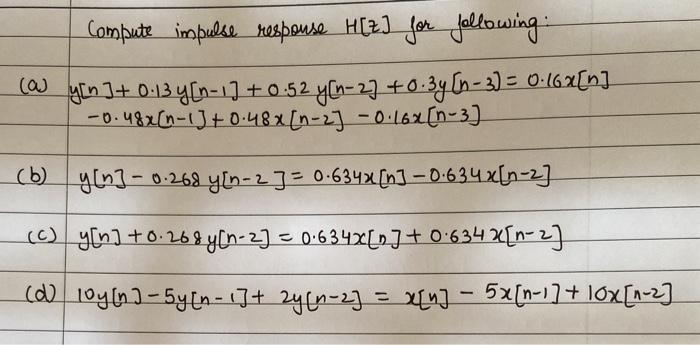 Compute impulse response H[z] for following:
(a) y[n] + 0.13y[n-1] + 0.52 y[n-2] + 0.3y[n-3] = 0.16x[n]
-0.48x[n-1] + 0.48x[n-2] - 0.16x[n-3]
(b) y[n] - 0.268 y[n-2] = 0.634x[n] - 0.634x[n-2]
(c) y[n] + 0.268y[n-2] = 0.634x[n] + 0.634x[n-2]
(d) 10y[n] - 5y[n-1] + 2y[n-2] = x[n] - 5x[n-1] + 10x[n-2]